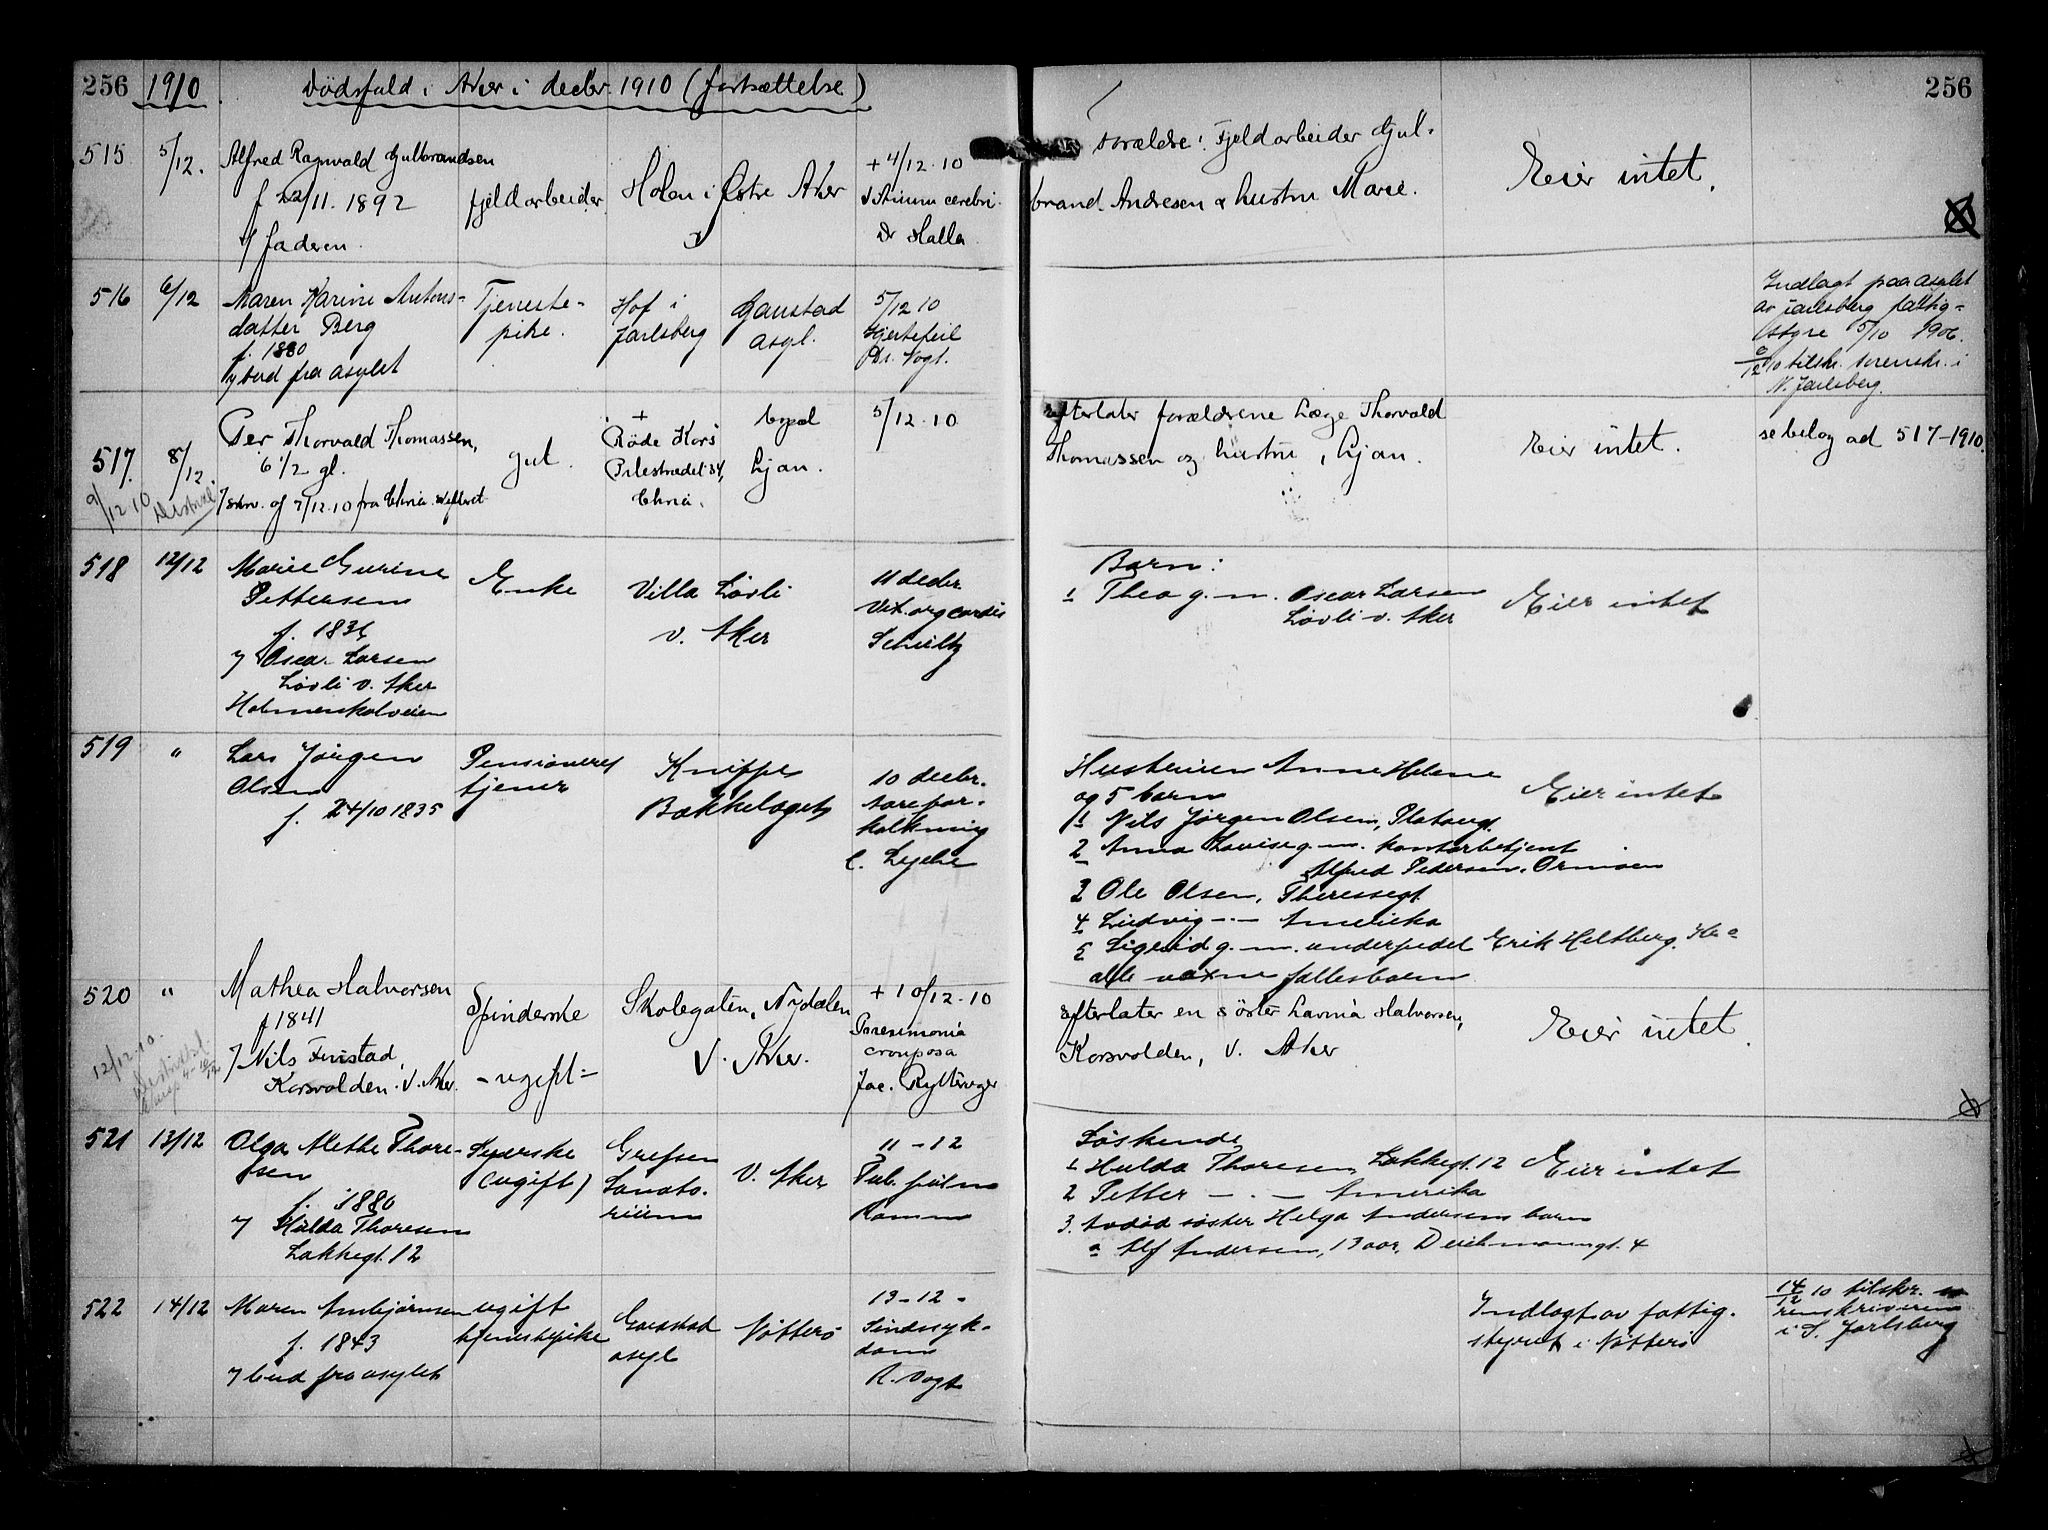 256 1910 Dødsfald i Aker i decbr. 1910 (fortsættelse) 256
515 5/12.
Alfred Ragnvald Gulbrandsen
f 22/11. 1892
v/ faderen.
fjeldarbeider.
Holen i Østre Aker
+ 4/12. 10
cerebri.
Dr Halla
Forældre: Fjeldarbeider Gul-
brand Andresen & hustru Marie.
Eier intet.
516 6/12
Maren Karine Antons-
datter Berg
f. 1880
v/ bud fra asylet
Tjeneste-
pike.
Hof i
Jarlsberg
Gaustad
asyl.
5/12 10
Hjertefeil
Dr. Vogt.
Indlagt paa asylet
av Jarlsberg fattig-
styre 5/10 1906.
6/12 10 tilskr. sorenskr. i
N. Jarlsberg.
517. 8/12.
9/12 10
Per Thorvald Thomassen,
6 1/2 gl.
v/ skr. af 7/12.10 fra Chria. skifteret
gut.
+
Røde Kors
Pilestrædet 34,
Chria.
bopæl
Ljan.
5/12. 10
Efterlater forældrene Læge Thorvald
Thomassen og hustru, Ljan.
Eier intet.
se bilag ad 517-1910.
518 12/12
Marie Gurine
Pettersen
f. 1836
v/ Oscar Larsen
Løvli v. Aker
Holmenkolveien
Enke
Villa Løvli
v. Aker
11 decbr.
Vit. org cordis
Schultz
Barn:
1 Thea g. m. Oscar Larsen
Løvli v. Aker
Eier intet
519 "
Lars Jørgen
Olsen
f. 24/10 1835
Pensioneret
tjener
Knippe
Bækkelaget
10 decbr.
Aarefor-
kalkning
C. Lyche
Hustruen Anne Helene
og 5 barn
1 Nils Jørgen Olsen, Platougt.
2 Anna Lovise g. m. kontorbetjent
Alfred Pedersen, Ormøen
3 Ole Olsen, Theresegt.
4 Ludvig -"- Amerika
5 Sigrid g. m. underpedel Erik Heltberg. Kr.a
alle voxne fællesbarn
Eier intet
520 "
12/12.10.
Mathea Halvorsen
f 1841
v/ Nils Finstad,
Korsvolden. V. Aker.
Spinderske
- ugift -
Skolegaten, Nydalen
V. Aker.
+ 10/12. 10
crouposa
Jac. Rytterager
Efterlater en søster Lavina Halvorsen,
Korsvolden, V. Aker
Eier intet.
521 13/12
Olga Alethe Thore-
sen
f. 1880
v/ Hulda Thoresen
Lakkegt. 12
Syerske
(ugift)
Grefsen
Sanato-
rium
V. Aker
11 - 12
Tub. pulm
Ramm
Søskende
1 Hulda Thoresen, Lakkegt. 12
2 Petter - " - Amerika
3. Avdød søster Helga Andersens barn
a Alf Andersen, 13 aar, Deichmannsgt. 4
Eier intet
522 14/12
Maren Ambjørnsen
f. 1843
v/ bud fra asylet
ugift
tjenestepike
Gaustad
asyl
Nøtterø
13-12-
Sindssyk-
dom
R. Vogt
Indlagt av fattig-
styret i Nøtterø
14/12 10 tilskr. so-
renskriveren
i S. Jarlsberg